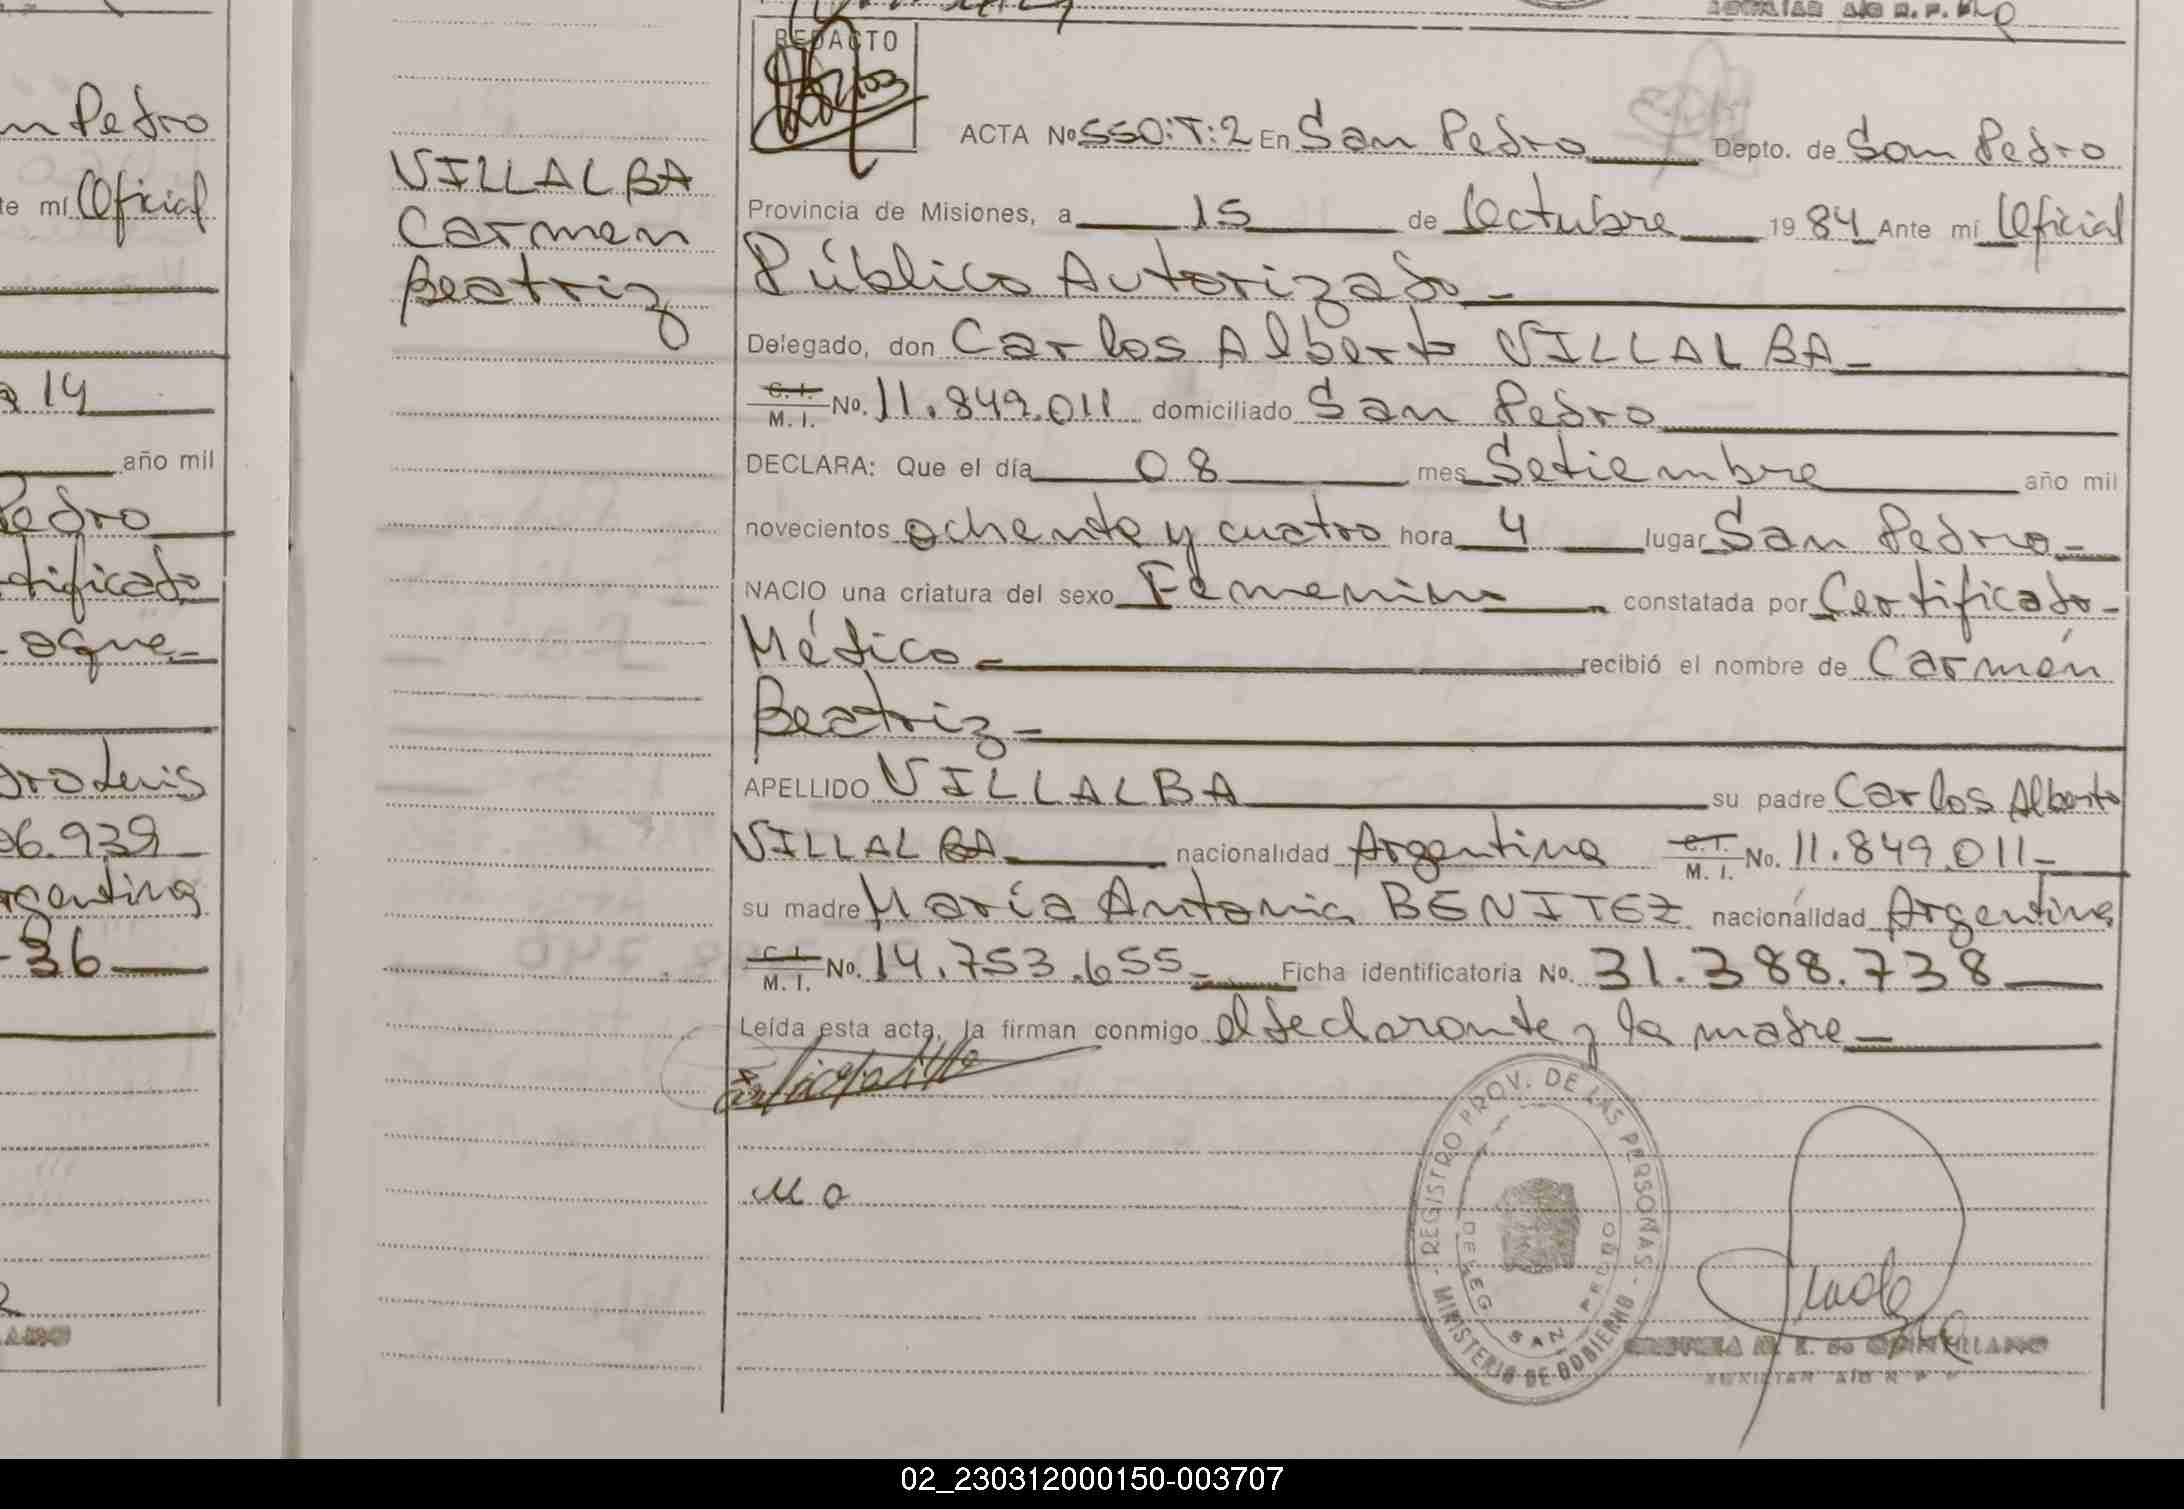 AUXILIAR A/C R. P.
REDACTO
n Pedro
ACTA No 550:T:2 En San Pedro Depto. de San Pedro
VILLALBA
te mí Oficial
Provincia de Misiones, a 15 de Octubre 1984 Ante mí Oficial
Carmen
Público Autorizado
Beatriz
Delegado, don Carlos Alberto VILLALBA
14
C. I.
M. I. No. 11.849.011 domiciliado San Pedro
año mil
DECLARA: Que el día 08 mes Setiembre año mil
Pedro
novecientos ochenta y cuatro hora 4 lugar San Pedro
tificado
NACIO una criatura del sexo Femenino constatada por Certificado
aque
Médico recibió el nombre de Carmén
Beatriz
dro Luis
APELLIDO VILLALBA su padre Carlos Alberto
06.939
VILLALBA nacionalidad Argentina C. I. M. I. No. 11.849.011
rgentina
su madre María Antonia BENITEZ nacionalidad Argentina
36
C. I. M. I. No. 14.753.655 Ficha identificatoria No. 31.388.738
Leída esta acta, la firman conmigo el declarante y la madre
REGISTRO PROV. DE LAS PERSONAS - MINISTERIO DE GOBIERNO -
DELEG SAN PEDRO
M. E. de QUINTILLANO
LANO
AUXILIAR A/C R P
02_230312000150-003707